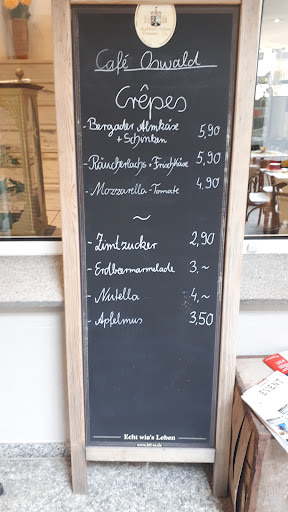 Café Oswald
Crêpes
- Bergader Almkäse 5,90
+ Schinken
- Räucherlachs + Frischkäse 5,90
- Mozzarella-Tomate 4,90
~
- Zimtzucker 2,90
- Erdbeermarmelade 3,~
- Nutella 4,~
- Apfelmus 3,50
Echt wia's Leben
EVENT